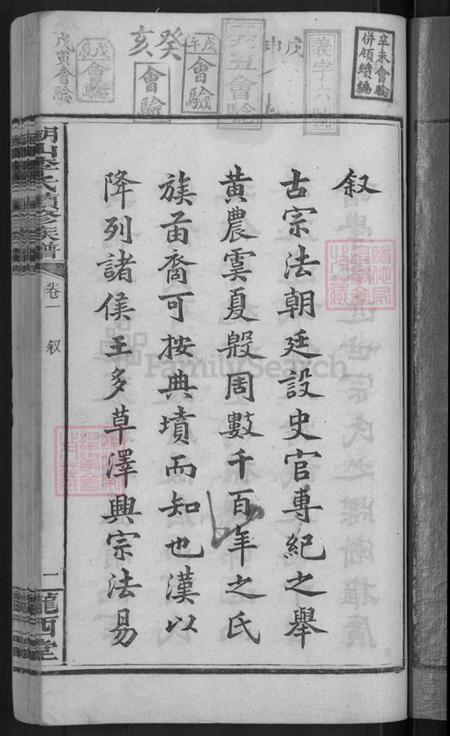 叙
古宗法朝廷設史官專紀之舉
黃農虞夏殷周數千百年之氏
族苗裔可按典墳而知也漢以
降列諸侯王多草澤興宗法易
氏續修族譜
卷一
叙
一
隴西堂
辛未會驗
併領續編
義字六號
戊申
會驗
戊午
會驗
癸亥
會驗
戊辰
會驗
戊寅會驗
FamilySearch